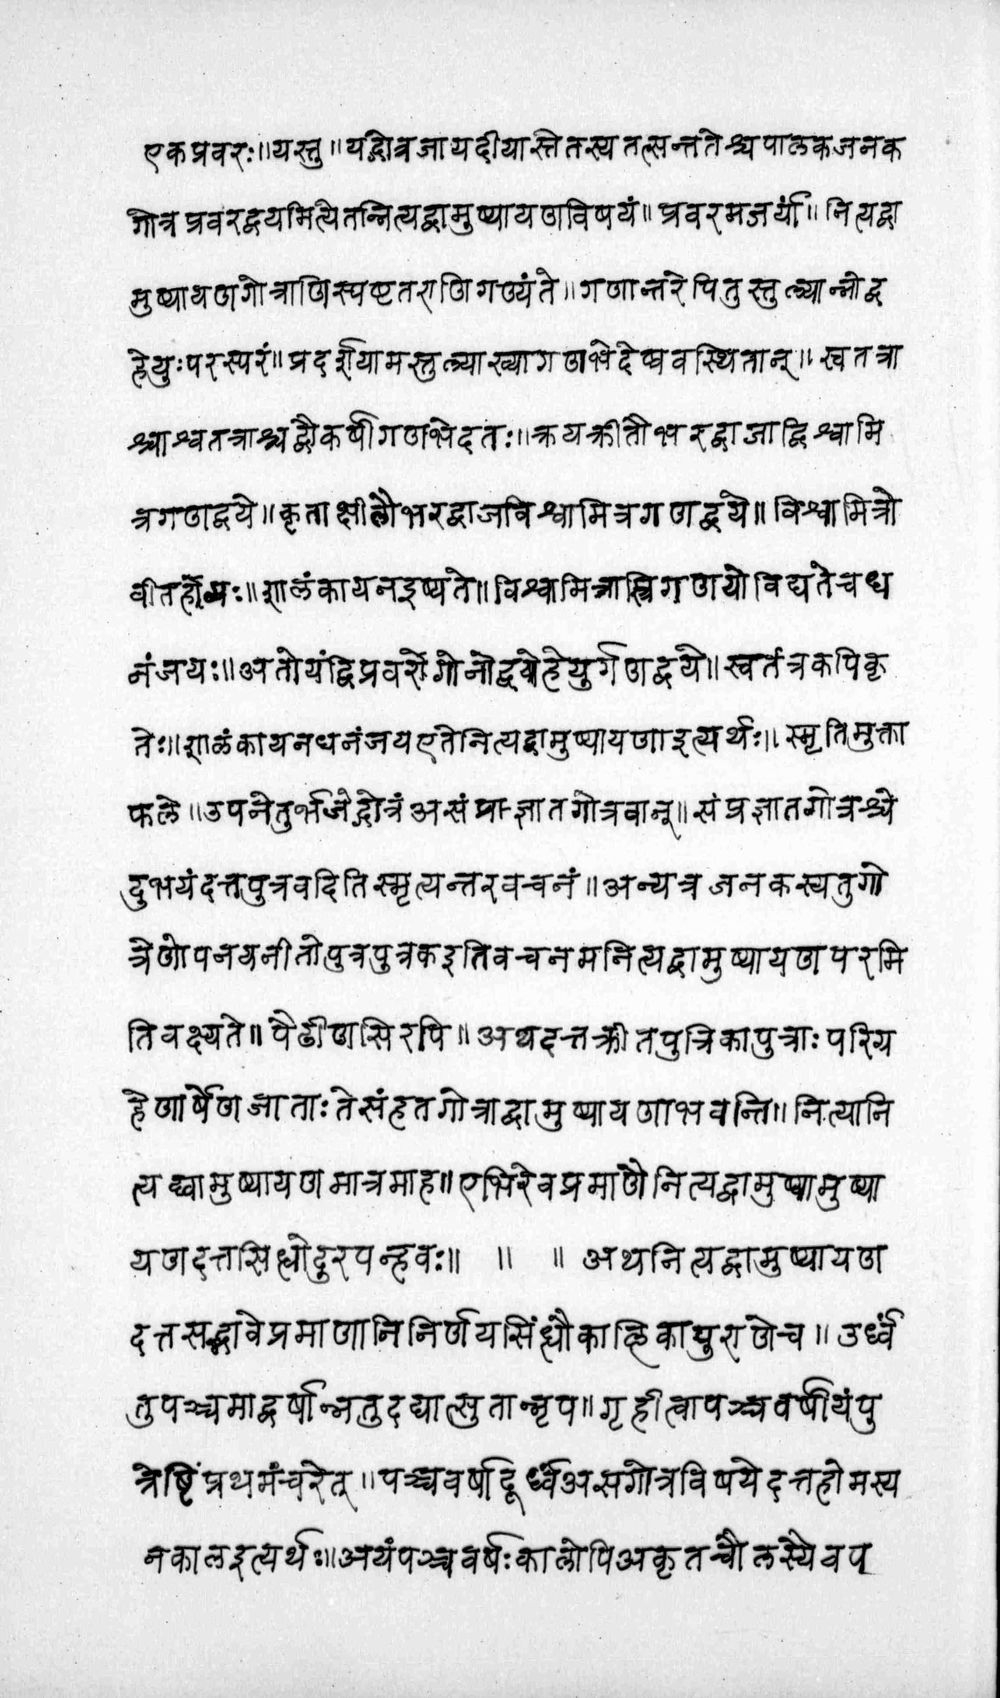 एकप्रवरः॥यस्तु॥यद्गोत्रजायदीयास्तेतस्यतत्सन्ततेश्चपालकजनक
गोत्रप्रवरद्वयमित्येतन्नित्यद्वामुष्यायणविषयं॥प्रवरमजर्यां॥नित्यद्वा
मुष्यायणगोत्राणिस्पष्टतराणिगण्यंते॥गणान्तरेपितुस्तुल्यान्नोद्व
हेयुःपरस्परं॥प्रदर्शयामस्तुल्याख्यागणभेदेष्ववस्थितान्॥स्वतत्रा
श्चाश्वतत्राश्चद्वौकर्षीगणभेदतः॥क्रयक्रीतौभरद्वाजाद्विश्वामि
त्रगणद्वये॥कृताक्षीलौभरद्वाजविश्वामित्रगणद्वये॥विश्वामित्रो
वीतर्हव्यः॥शालंकायनइष्यते॥विश्वामित्रात्रिगणयोविद्यतेचध
नंजयः॥अतोयंद्विप्रवरोगोनोद्वहेयुर्गणद्वये॥स्वतंत्रकपिकृ
तेः॥शालंकायनधनंजयएतेनित्यद्वामुष्यायणाइत्यर्थः॥स्मृतिमुक्ता
फले॥उपनेतुर्भजेद्गोत्रंअसंप्राज्ञातगोत्रवान्॥संप्रज्ञातगोत्रश्चे
दुभयंदत्तपुत्रवदितिस्मृत्यन्तरवचनं॥अन्यत्रजनकस्यतुगो
त्रेणोपनयनीतोपुत्रपुत्रकइतिवचनमनित्यद्वामुष्यायणपरमि
तिवक्ष्यते॥पैढीणसिरपि॥अथदत्तक्रीतपुत्रिकापुत्राःपरिग्र
हेणार्षेणजाताःतेसंहतगोत्राद्वामुष्यायणाभवन्ति॥नित्यानि
त्यद्वामुष्यायणमात्रमाह॥एभिरेवप्रमाणैनित्यद्वामुष्यामुष्या
यणदत्तसिद्धोदुरपन्हवः॥ ॥ ॥ अथनित्यद्वामुष्यायण
दत्तसद्भावेप्रमाणानिनिर्णयसिंधौकाल्हिकापुराणेच॥उर्ध्वं
तुपञ्चमाद्वर्षान्नतुदद्यात्सुतान्नृप॥गृहीत्वापञ्चवर्षीयंपु
त्रेष्टिंप्रथमंचरेत्॥पञ्चवर्षादूर्ध्वंअसगोत्रविषयेदत्तहोमस्य
नकालइत्यर्थः॥अयंपञ्चवर्षःकालोपिअकृतचौलस्यैवप